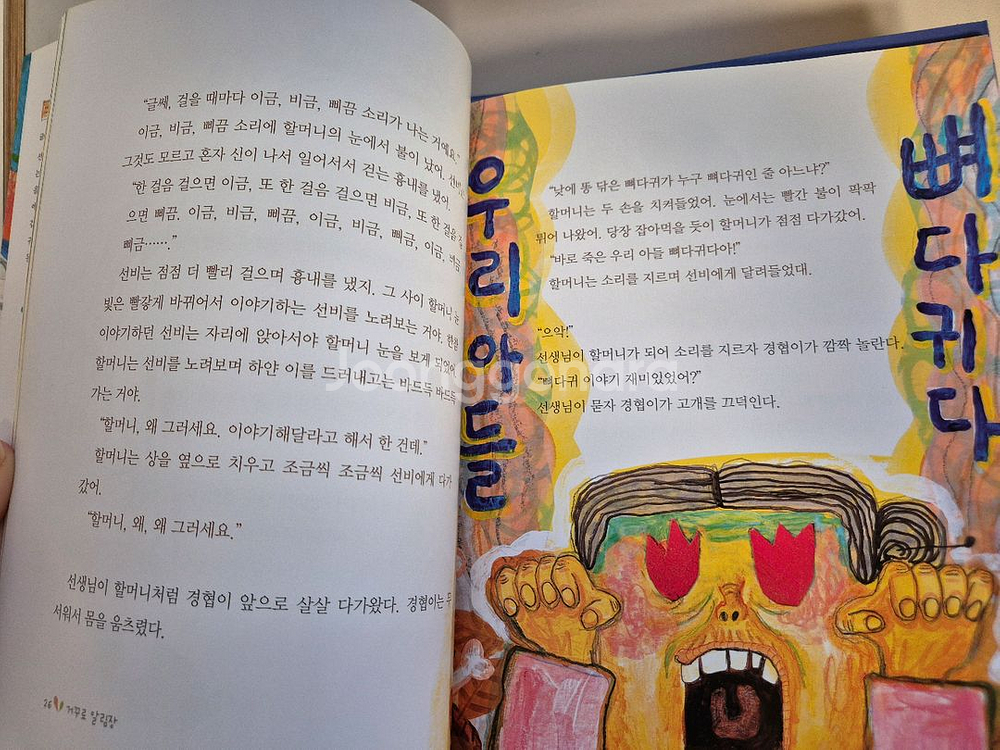 “글쎄, 걸을 때마다 이금, 비금, 삐끔 소리가 나는 거예요.”
이금, 비금, 삐끔 소리에 할머니의 눈에서 불이 났어. 선비
그것도 모르고 혼자 신이 나서 일어서서 걷는 흉내를 냈어.
“한 걸음 걸으면 이금, 또 한 걸음 걸으면 비금, 또 한 걸음
으면 삐끔, 이금, 비금, 삐끔, 이금, 비금, 삐끔, 이금, 비금
삐금…….”
선비는 점점 더 빨리 걸으며 흉내를 냈지. 그 사이 할머니 눈
빛은 빨갛게 바뀌어서 이야기하는 선비를 노려보는 거야. 한참
이야기하던 선비는 자리에 앉아서야 할머니 눈을 보게 되었어.
할머니는 선비를 노려보며 하얀 이를 드러내고는 바드득 바드득
가는 거야.
“할머니, 왜 그러세요. 이야기해달라고 해서 한 건데.”
할머니는 상을 옆으로 치우고 조금씩 조금씩 선비에게 다가
갔어.
“할머니, 왜, 왜 그러세요.”
선생님이 할머니처럼 경협이 앞으로 살살 다가왔다. 경협이는 무
서워서 몸을 움츠렸다.
26 거꾸로 알림장
우리 아들
뼈다귀다
“낮에 똥 닦은 뼈다귀가 누구 뼈다귀인 줄 아느냐?”
할머니는 두 손을 치켜들었어. 눈에서는 빨간 불이 팍팍
튀어 나왔어. 당장 잡아먹을 듯이 할머니가 점점 다가갔어.
“바로 죽은 우리 아들 뼈다귀다아!”
할머니는 소리를 지르며 선비에게 달려들었대.
“으악!”
선생님이 할머니가 되어 소리를 지르자 경협이가 깜짝 놀란다.
“뼈다귀 이야기 재미있었어?”
선생님이 묻자 경협이가 고개를 끄덕인다.